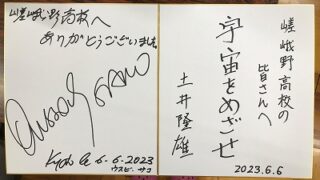 嵯峨野高校の
皆さんへ
宇宙をめざせ
土井隆雄
2023.6.6
嵯峨野高校へ
ありがとうございました
Oussouby SACKO
Kyoto
6-6-2023
ウスビ・サコ